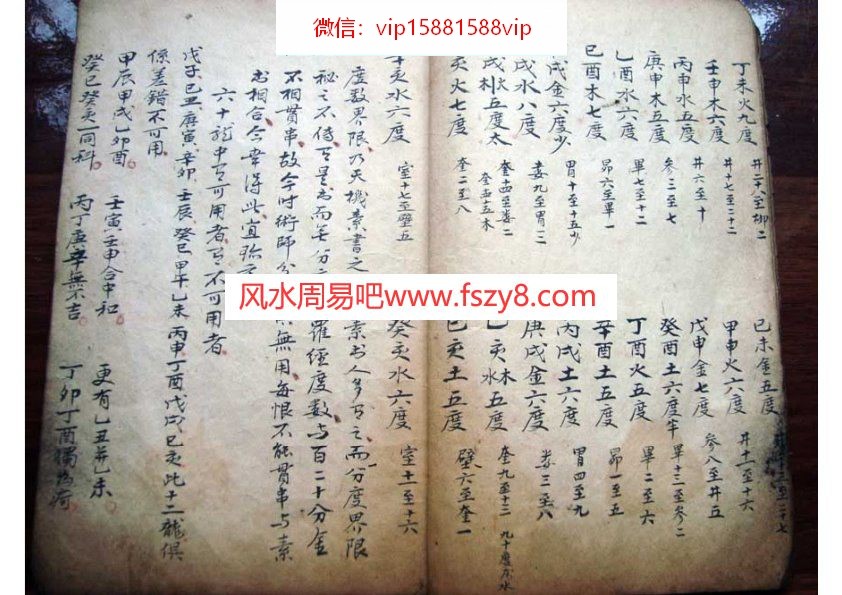 微信：vip15881588vip
丁未火九度 井二十八至柳二
壬申木六度 井十七至二十二
丙申水五度 井六至十
庚申木五度 参三至七
乙酉水六度 畢七至十二
己酉木七度 昴六至畢一
戌金六度少 胃十至十五少
戌水八度 婁九至胃三
戌木五度太 奎十四至婁二
亥火七度 奎二至八
己未金五度
甲申火六度 井十一至十六
戊申金七度 参八至井五
癸酉土六度半 畢十三至参二
丁酉火五度 畢二至六
辛酉土五度 昴一至五
丙戌土六度 胃四至九
庚戌金六度 婁三至八
乙亥木五度 奎九至十三
己亥土五度 壁六至奎一
亥水六度 室十七至壁五 癸亥水六度 室十一至十六
度数界限乃天機素書之 素書人多 之而分度界限
秘之不傳 而無分 羅經度数与百二十分金
不相貫串故今时術師分 無用每恨不能貫串与素
相合今幸得此宜珍
六十龍中有可用者有不可用者
戊子己丑庚寅辛卯壬辰癸巳甲午乙未丙申丁酉戊戌己亥此十二龍俱
係差錯不可用
甲辰甲戌乙卯酉 壬寅壬申合中和 更有乙丑并乙未
癸巳癸亥一同科 丙丁虚辛無不吉 丁卯丁酉獨為奇
风水周易吧www.fszy8.com